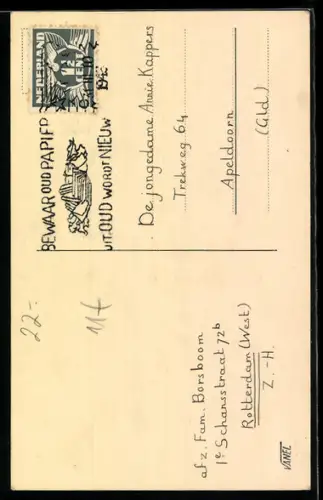 NEDERLAND
1½
CENT
BEWAAR OUD PAPIER
UIT OUD WORDT NIEUW
De jongedame Annie Kappers
Trekweg 64
Apeldoorn
(Gld)
22-
afz. Fam. Borsboom
1e Schansstraat 72b
Rotterdam (West)
Z.-H.
VANEL